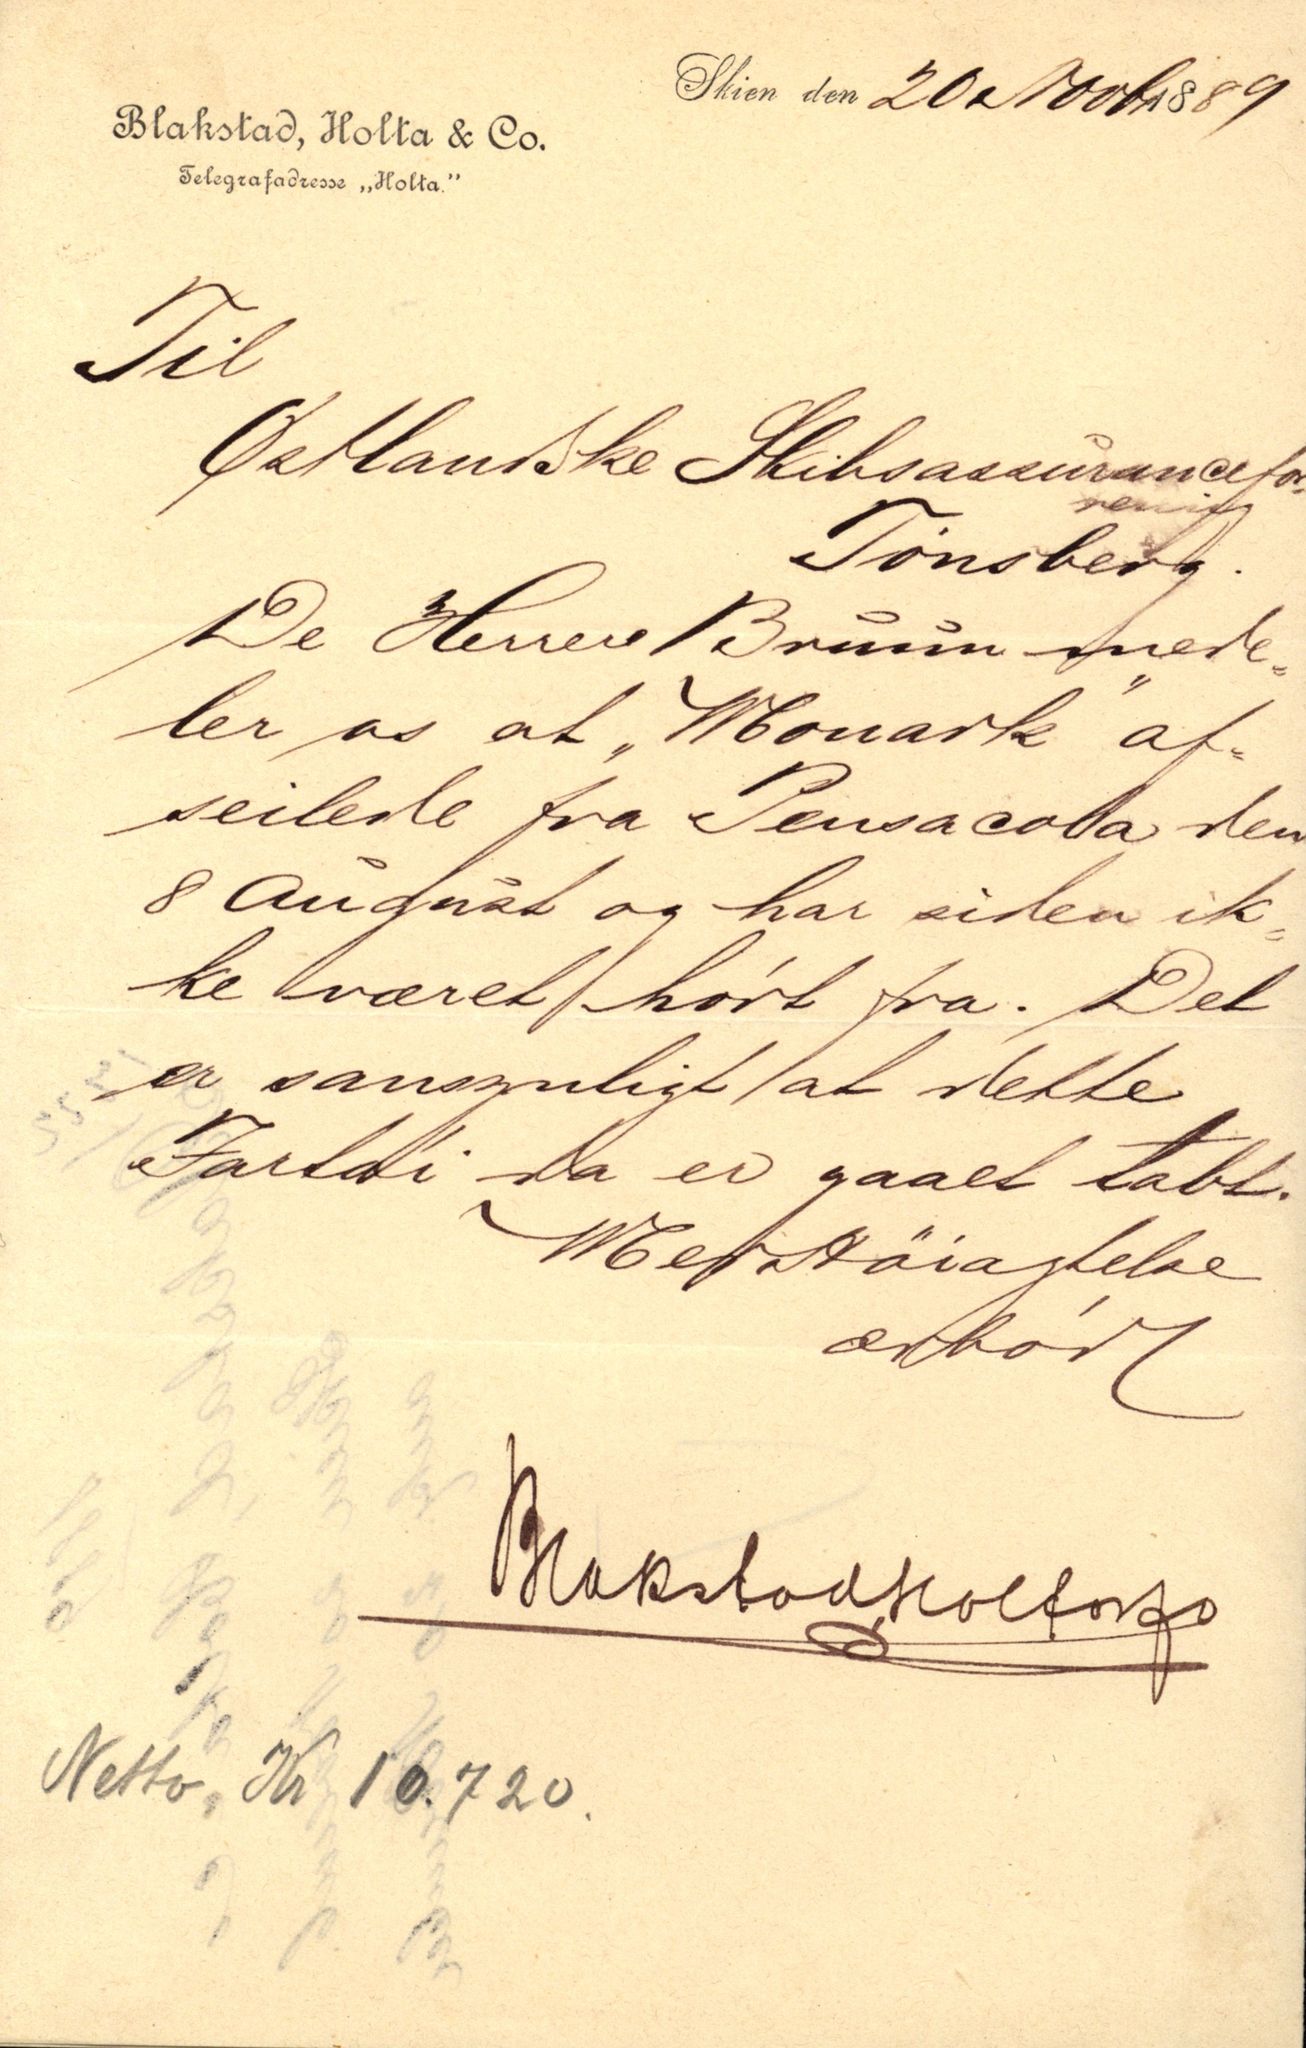 Skien den 20 Novbr 1889
Blakstad, Holta & Co.
Telegrafadresse „Holta."
Til
Østlandske Skibsassurancefor-
rening
Tönsberg.
De Herrer Bruun mede-
ler os at „Monark" af-
seilede fra Pensacola den
8 August og har siden ik-
ke været hört fra. Det
er sansynligt at dette
Fartöi da er gaaet tabt.
Med Höiagtelse
ærbör
Blakstad Holta & Co
Netto, Kr 10.720.